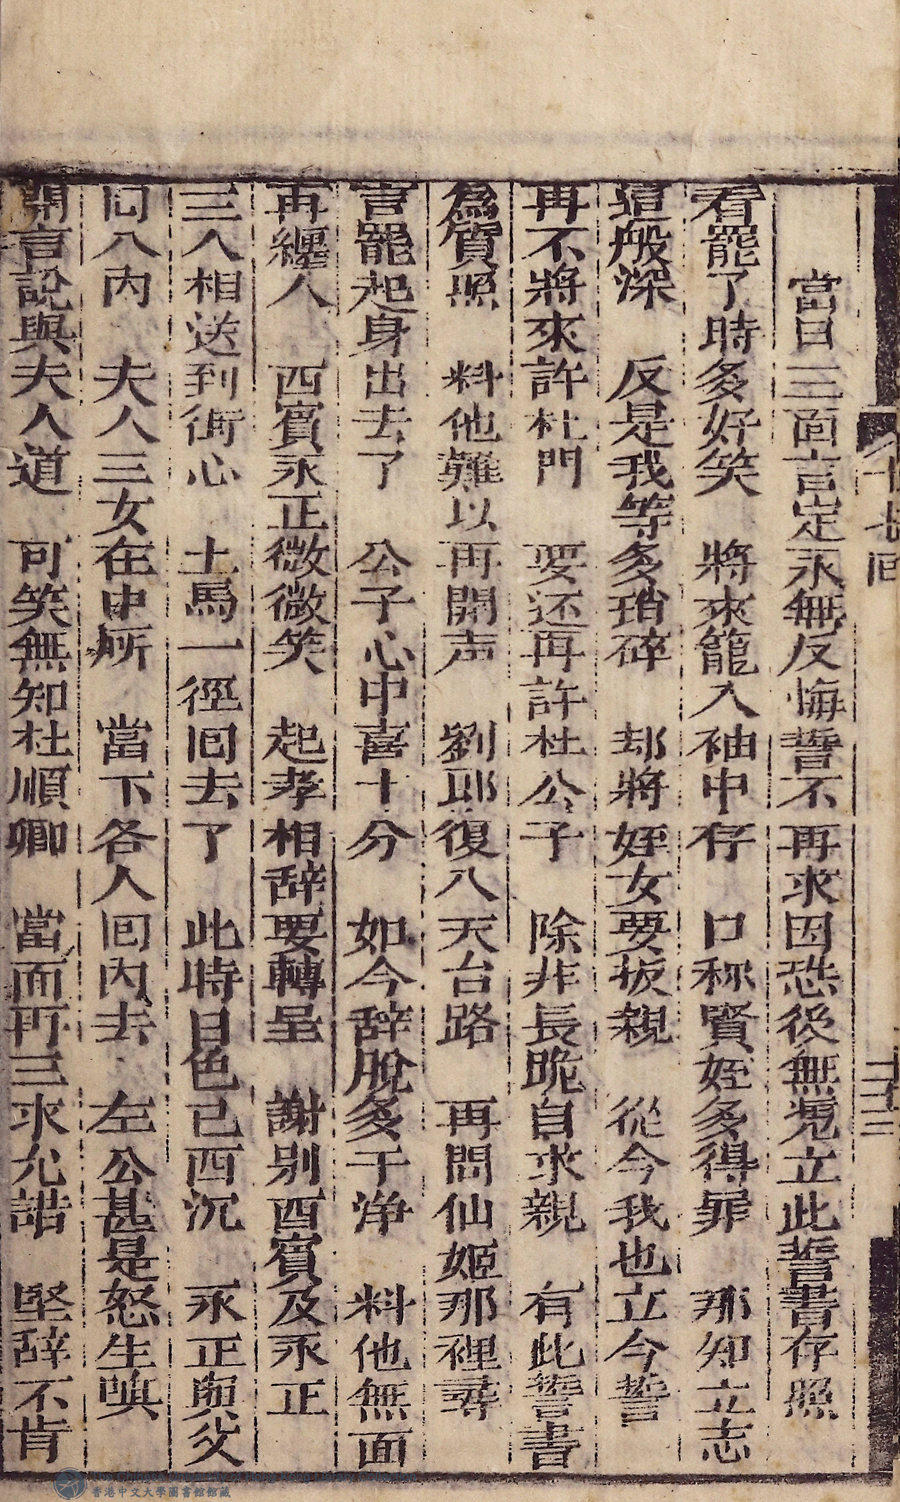 當日三面言定永無反悔誓不再求因恐後無凴立此誓書存照
看罷了時多好笑 將來籠入袖中存 口称賢姪多得罪 那知立志
這般深 反是我等多瑣碎 却將姪女要扳親 從今我也立今誓
再不將來許杜門 要还再許杜公子 除非長跪自求親 有此誓書
為質照 料他難以再開声 劉郎復入天台路 再問仙姬那裡尋
言罷起身出去了 公子心中喜十分 如今辞脫多干净 料他無面
再纏人 西賓永正微微笑 起孝相辞要轉呈 謝别西賓及永正
三人相送到街心 士馬一徑回去了 此時日色已西沉 永正與父
同入内 夫人三女在中所 當下各人回内去 左公甚是怒生嗔
開言說與夫人道 可笑無知杜順卿 當面再三求允諾 堅辞不肯
十七回
二十三
香港中文大學圖書館館藏